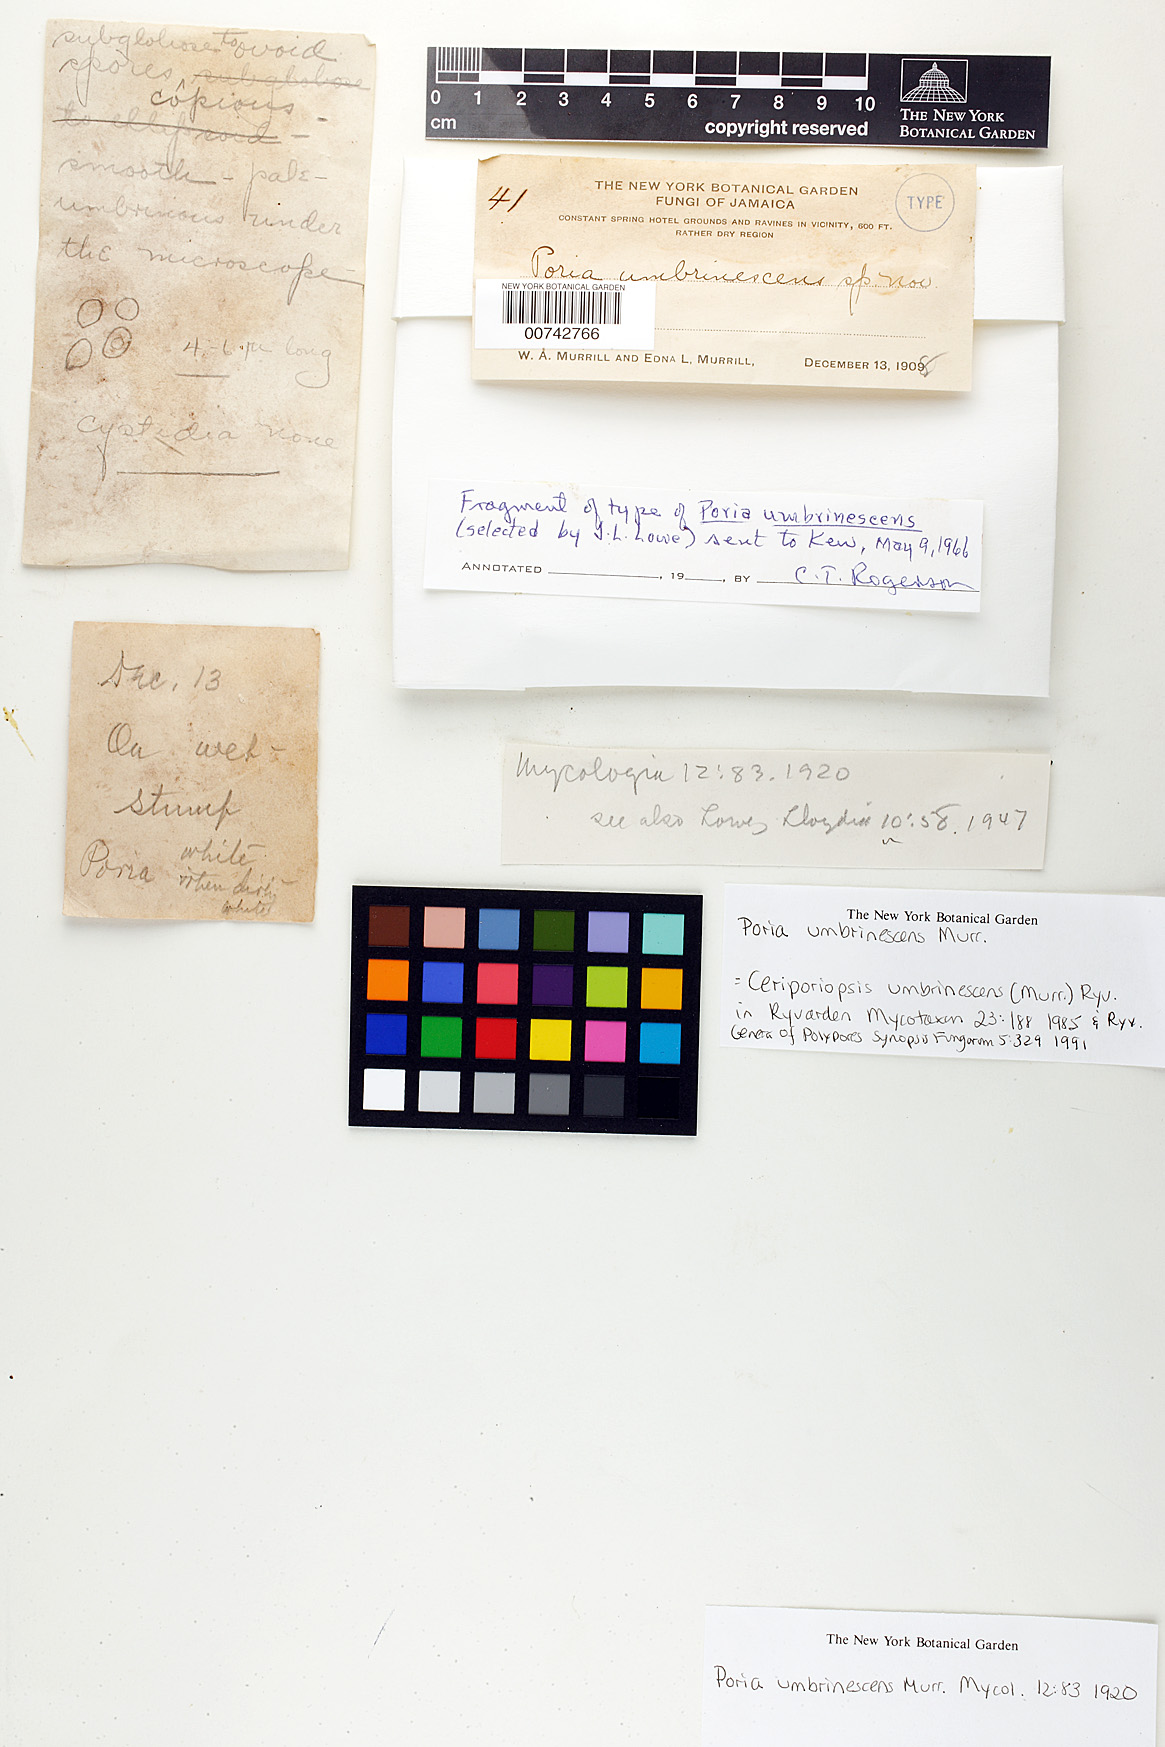 subglobose to ovoid
spores, subglobose
copious
to ellipsoid -
smooth - pale-
umbrinous under
the microscope
4-6 µ long
cystidia none
0 1 2 3 4 5 6 7 8 9 10
cm
copyright reserved
THE NEW YORK
BOTANICAL GARDEN
41
THE NEW YORK BOTANICAL GARDEN
FUNGI OF JAMAICA
TYPE
CONSTANT SPRING HOTEL GROUNDS AND RAVINES IN VICINITY, 600 FT.
RATHER DRY REGION
Poria umbrinescens sp. nov.
NEW YORK BOTANICAL GARDEN
00742766
W. A. MURRILL AND EDNA L. MURRILL, DECEMBER 13, 1908
Fragment of type of Poria umbrinescens
(selected by J.L. Lowe) sent to Kew, May 9, 1966
ANNOTATED , 19 , BY C.T. Rogerson
Dec. 13
On wet
stump
Poria white
when
white
Mycologia 12:83. 1920
see also Lowe, Lloydia 10:58. 1947
The New York Botanical Garden
Poria umbrinescens Murr.
= Ceriporiopsis umbrinescens (Murr.) Ryv.
in Ryvarden Mycotaxon 23:188 1985 & Ryv.
Genera of Polypores Synopsis Fungorum 5:329 1991
The New York Botanical Garden
Poria umbrinescens Murr. Mycol. 12:83 1920